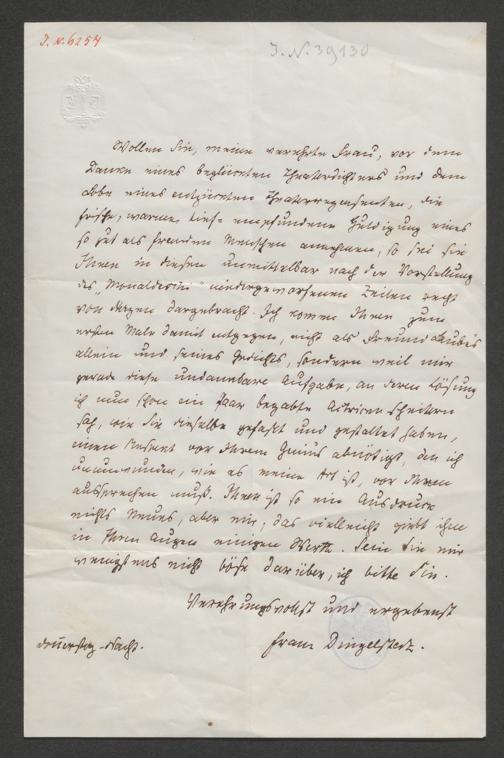 J. N. 6254
J. N. 39130
Wollen Sie, meine verehrte Frau, vor dem
Danke eines beglückten Theaterdichters und dem
Lobe eines entzückten Theaterrezensenten, die
frische, warme, tief empfundene Huldigung eines
so gut als fremden Menschen annehmen, so sei sie
Ihnen in diesen unmittelbar nach der Vorstellung
des „Monaldeschi" niedergeworfenen Zeilen recht
von Herzen dargebracht. Ich komme Ihnen zum
ersten Male damit entgegen, nicht als Freund Laube's
allein und seines Gedichts, sondern weil mir
gerade diese undankbare Aufgabe, an deren Lösung
ich nun schon ein paar begabte Actricen scheitern
sah, wie Sie dieselbe gefaßt und gestaltet haben,
einen Respect vor Ihrem Genius abnöthigt, den ich
unumwunden, wie es meine Art ist, vor Ihnen
aussprechen muß. Ihnen ist so ein Ausdruck
nichts Neues, aber mir; das vielleicht giebt ihm
in Ihren Augen einigen Werth. Sein Sie mir
wenigstens nicht böse darüber, ich bitte Sie.
Verehrungsvollst und ergebenst
Donnerstag-Nacht.
Franz Dingelstedt.